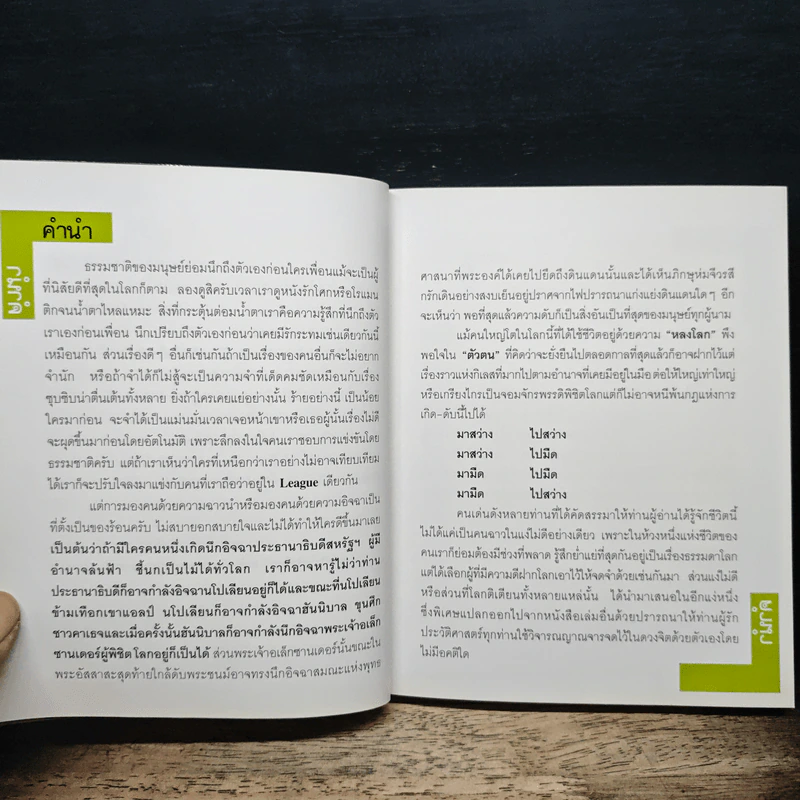 คำนำ
คำนำ
ธรรมชาติของมนุษย์ย่อมนึกถึงตัวเองก่อนใครเพื่อนแม้จะเป็นผู้
ที่นิสัยดีที่สุดในโลกก็ตาม ลองดูสิครับเวลาเราดูหนังรักโศกหรือโรแมน
ติกจนน้ำตาไหลแหมะ สิ่งที่กระตุ้นต่อมน้ำตาเราคือความรู้สึกที่นึกถึงตัว
เราเองก่อนเพื่อน นึกเปรียบถึงตัวเองก่อนว่าเคยมีรักระทมเช่นเดียวกันนี้
เหมือนกัน ส่วนเรื่องดีๆ อื่นก็เช่นกันถ้าเป็นเรื่องของคนอื่นก็จะไม่อยาก
จำนัก หรือถ้าจำได้ก็ไม่สู้จะเป็นความจำที่เด็ดคมชัดเหมือนกับเรื่อง
ซุบซิบน่าตื่นเต้นทั้งหลาย ยิ่งถ้าใครเคยแย่อย่างนั้น ร้ายอย่างนี้ เป็นน้อย
ใครมาก่อน จะจำได้เป็นแม่นมั่นเวลาเจอหน้าเขาหรือเธอผู้นั้นเรื่องไม่ดี
จะผุดขึ้นมาก่อนโดยอัตโนมัติ เพราะลึกลงในใจคนเราชอบการแข่งขันโดย
ธรรมชาติครับ แต่ถ้าเราเห็นว่าใครที่เหนือกว่าเราอย่างไม่อาจเทียบเทียม
ได้เราก็จะปรับใจลงมาแข่งกับคนที่เราถือว่าอยู่ใน League เดียวกัน
แต่การมองคนด้วยความฉาวนำหรือมองคนด้วยความอิจฉาเป็น
ที่ตั้งเป็นของร้อนครับ ไม่สบายอกสบายใจและไม่ได้ทำให้ใครดีขึ้นมาเลย
เป็นต้นว่าถ้ามีใครคนหนึ่งเกิดนึกอิจฉาประธานาธิบดีสหรัฐฯ ผู้มี
อำนาจล้นฟ้า ชี้นกเป็นไม้ได้ทั่วโลก เราก็อาจหารู้ไม่ว่าท่าน
ประธานาธิบดีก็อาจกำลังอิจฉานโปเลียนอยู่ก็ได้และขณะที่นโปเลียน
ข้ามเทือกเขาแอลป์ นโปเลียนก็อาจกำลังอิจฉาฮันนิบาล ขุนศึก
ชาวคาเธจและเมื่อครั้งนั้นฮันนิบาลก็อาจกำลังนึกอิจฉาพระเจ้าอเล็ก
ซานเดอร์ผู้พิชิตโลกอยู่ก็เป็นได้ ส่วนพระเจ้าอเล็กซานเดอร์นั้นขณะใน
พระอัสสาสะสุดท้ายใกล้ดับพระชนม์อาจทรงนึกอิจฉาสมณะแห่งพุทธ
ศาสนาที่พระองค์ได้เคยไปยึดถึงดินแดนนั้นและได้เห็นภิกษุห่มจีวรสี
กรักเดินอย่างสงบเย็นอยู่ปราศจากไฟปรารถนาแก่งแย่งดินแดนใดๆ อีก
จะเห็นว่า พอที่สุดแล้วความดับก็เป็นสิ่งอันเป็นที่สุดของมนุษย์ทุกผู้นาม
แม้คนใหญ่โตในโลกนี้ที่ได้ใช้ชีวิตอยู่ด้วยความ “หลงโลก” พึง
พอใจใน “ตัวตน” ที่คิดว่าจะยั่งยืนไปตลอดกาลที่สุดแล้วก็อาจฝากไว้แต่
เรื่องราวแห่งกิเลสที่มากไปตามอำนาจที่เคยมีอยู่ในมือต่อให้ใหญ่เท่าใหญ่
หรือเกรียงไกรเป็นจอมจักรพรรดิพิชิตโลกแต่ก็ไม่อาจหนีพ้นกฎแห่งการ
เกิด-ดับนี้ไปได้
มาสว่าง ไปสว่าง
มาสว่าง ไปมืด
มามืด ไปมืด
มามืด ไปสว่าง
คนเด่นดังหลายท่านที่ได้คัดสรรมาให้ท่านผู้อ่านได้รู้จักชีวิตนี้
ไม่ได้แค่เป็นคนฉาวในแง่ไม่ดีอย่างเดียว เพราะในห้วงหนึ่งแห่งชีวิตของ
คนเราก็ย่อมต้องมีช่วงที่พลาด รู้สึกย่ำแย่ที่สุดกันอยู่เป็นเรื่องธรรมดาโลก
แต่ได้เลือกผู้ที่มีความดีฝากโลกเอาไว้ให้จดจำด้วยเช่นกันมา ส่วนแง่ไม่ดี
หรือส่วนที่โลกติเตียนทั้งหลายแหล่นั้น ได้นำมาเสนอในอีกแง่หนึ่ง
ซึ่งพิเศษแปลกออกไปจากหนังสือเล่มอื่นด้วยปรารถนาให้ท่านผู้รัก
ประวัติศาสตร์ทุกท่านใช้วิจารณญาณจารจดไว้ในดวงจิตด้วยตัวเองโดย
ไม่มีอคติใด
คำนำ